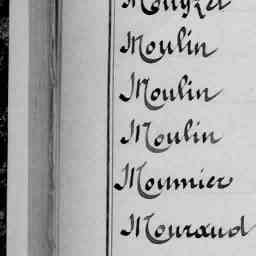 Moulin
Moulin
Moulin
Mounier
Mouraud